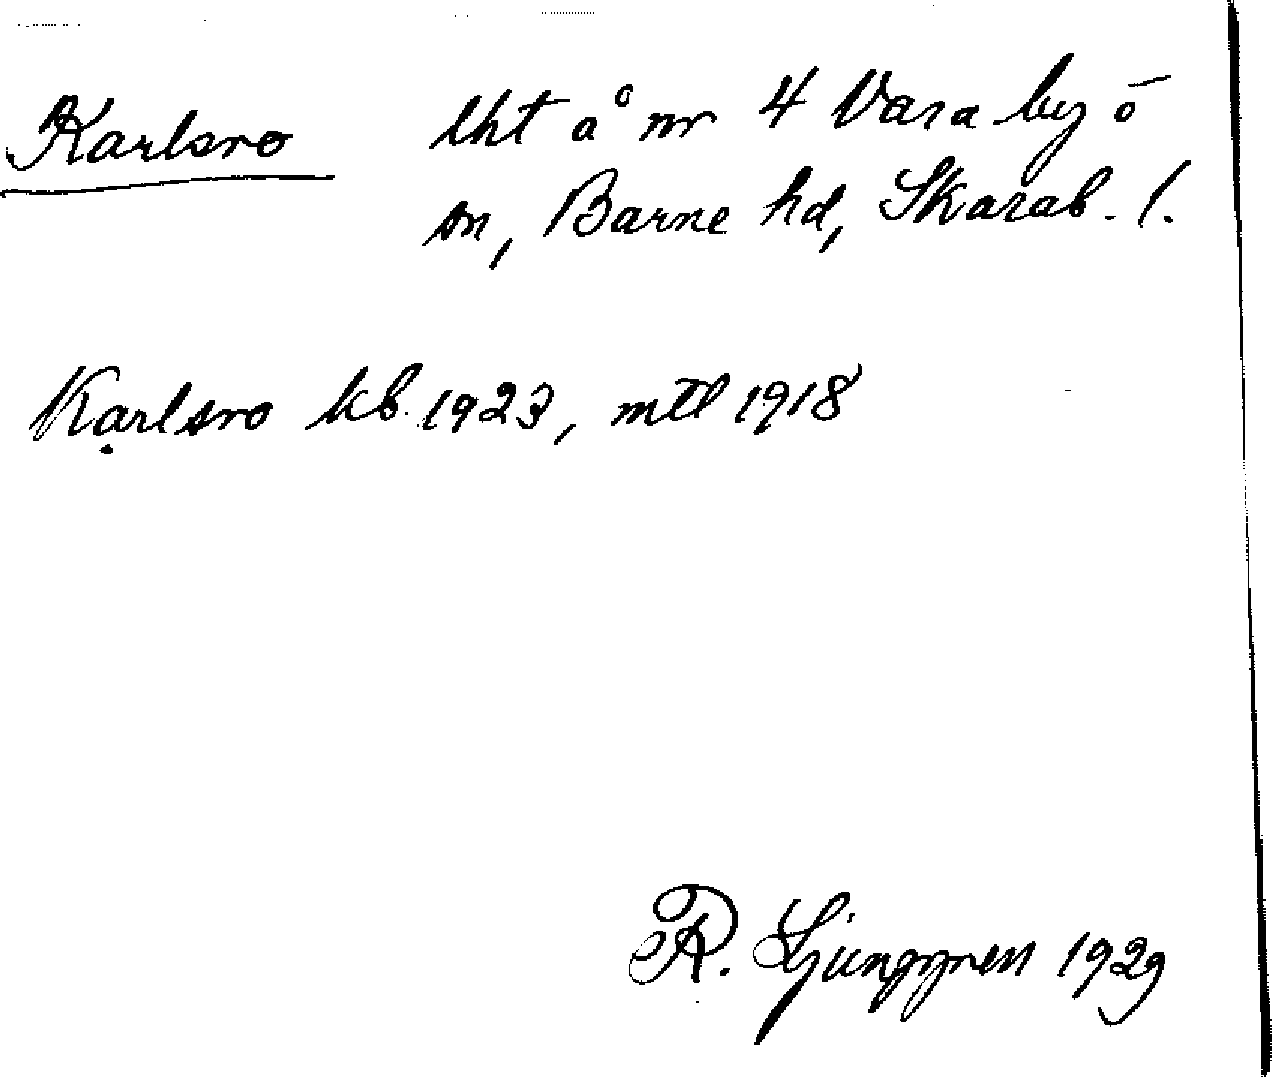 Karlsro lht å nr 4 Vara by o
sn, Barne hd, Skarab. l.
Karlsro kb. 1923, mtl 1918
R. Ljunggren 1929